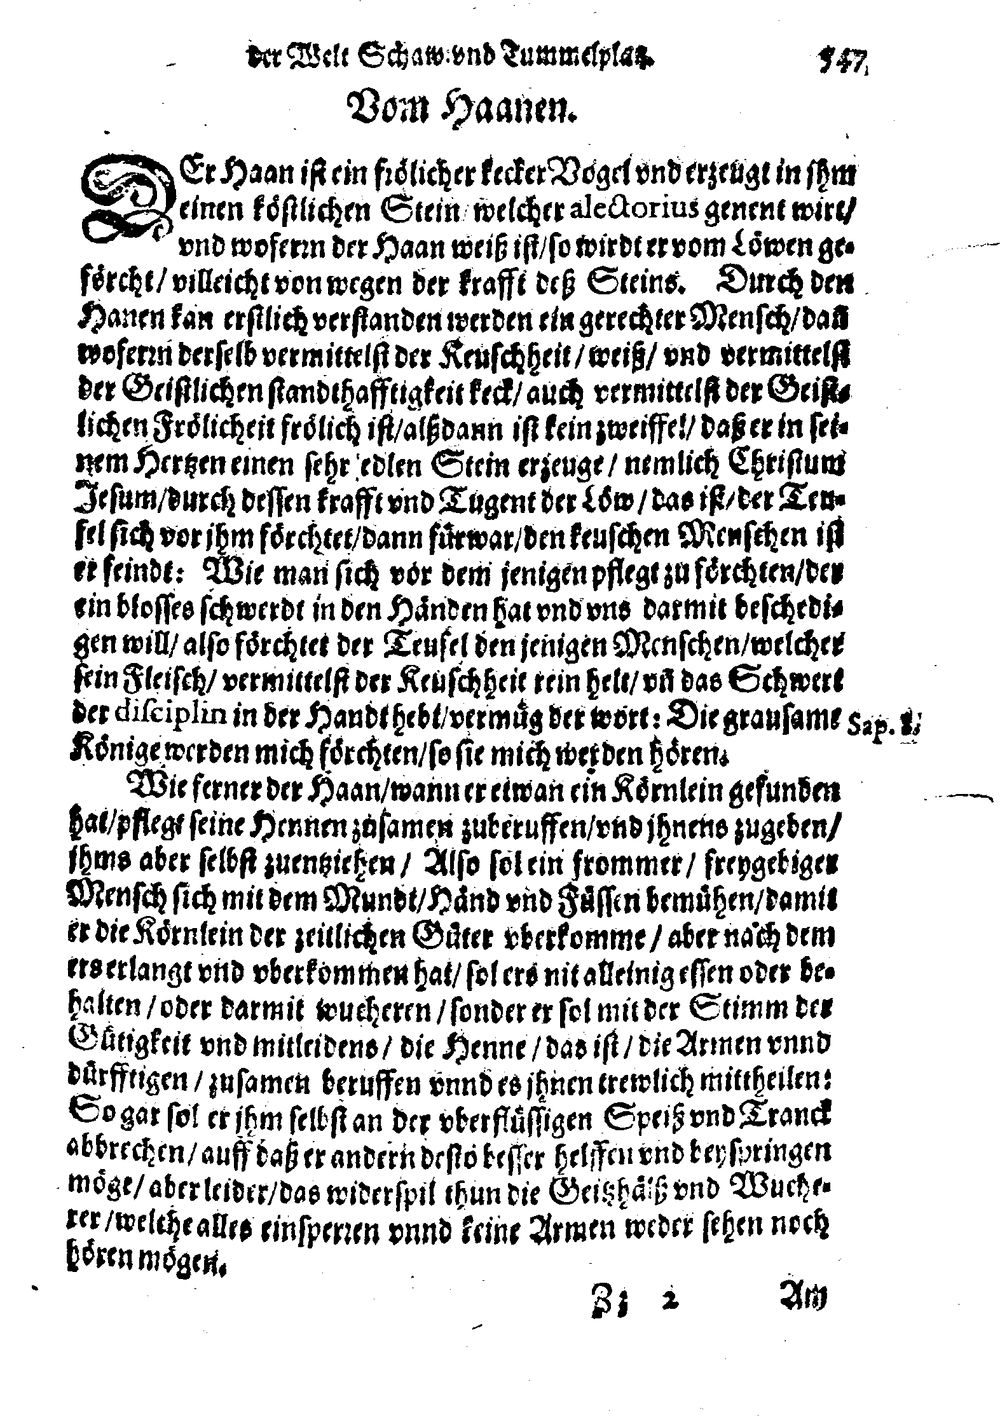 der Welt Schaw vnd Tummelplatz. 547
Vom Haanen.
DEr Haan ist ein frölicher kecker Vogel vnd erzeugt in jhm
einen köstlichen Stein welcher alectorius genent wirt/
vnd wofern der Haan weiß ist/so wirdt er vom Löwen ge-
förcht/ villeicht von wegen der krafft deß Steins. Durch den
Hanen kan erstlich verstanden werden ein gerechter Mensch/dañ
wofern derselb vermittelst der Keuschheit/weiß/ vnd vermittelst
der Geistlichen standthafftigkeit keck/ auch vermittelst der Geist-
lichen Frölicheit frölich ist/alßdann ist kein zweiffel/ daß er in sei-
nem Hertzen einen sehr edlen Stein erzeuge/ nemlich Christum
Jesum/durch dessen krafft vnd Tugent der Löw/das ist/der Teu-
fel sich vor jhm förchtet/dann fürwar/den keuschen Menschen ist
er feindt: Wie man sich vor dem jenigen pflegt zu förchten/der
ein blosses schwerdt in den Händen hat vnd vns darmit beschedi-
gen will/ also förchtet der Teufel den jenigen Menschen/welcher
sein Fleisch/ vermittelst der Keuschheit rein helt/ vñ das Schwert
der disciplin in der Handt hebt/vermüg der wort: Die grausame Sap. 8.
Könige werden mich förchten/so sie mich werden hören.
Wie ferner der Haan/wann er etwan ein Körnlein gefunden
hat/pflegt seine Hennen zusamen zuberuffen/vnd jhnens zugeben/
jhms aber selbst zuentziehen/ Also sol ein frommer/ freygebiger
Mensch sich mit dem Mundt/Händ vnd Füssen bemühen/damit
er die Körnlein der zeitlichen Güter vberkomme/ aber nach dem
ers erlangt vnd vberkommen hat/ sol ers nit alleinig essen oder be-
halten/oder darmit wucheren/sonder er sol mit der Stimm der
Gütigkeit vnd mitleidens/ die Henne/das ist/die Armen vnnd
dürfftigen/zusamen beruffen vnnd es jhnen trewlich mittheilen:
So gar sol er jhm selbst an der vberflüssigen Speiß vnd Tranck
abbrechen/ auff daß er andern desto besser helffen vnd beyspringen
möge/ aber leider/das widerspil thun die Geitzhälß vnd Wuche-
rer/welche alles einsperren vnnd keine Armen weder sehen noch
hören mögen.
Zz 2 Am